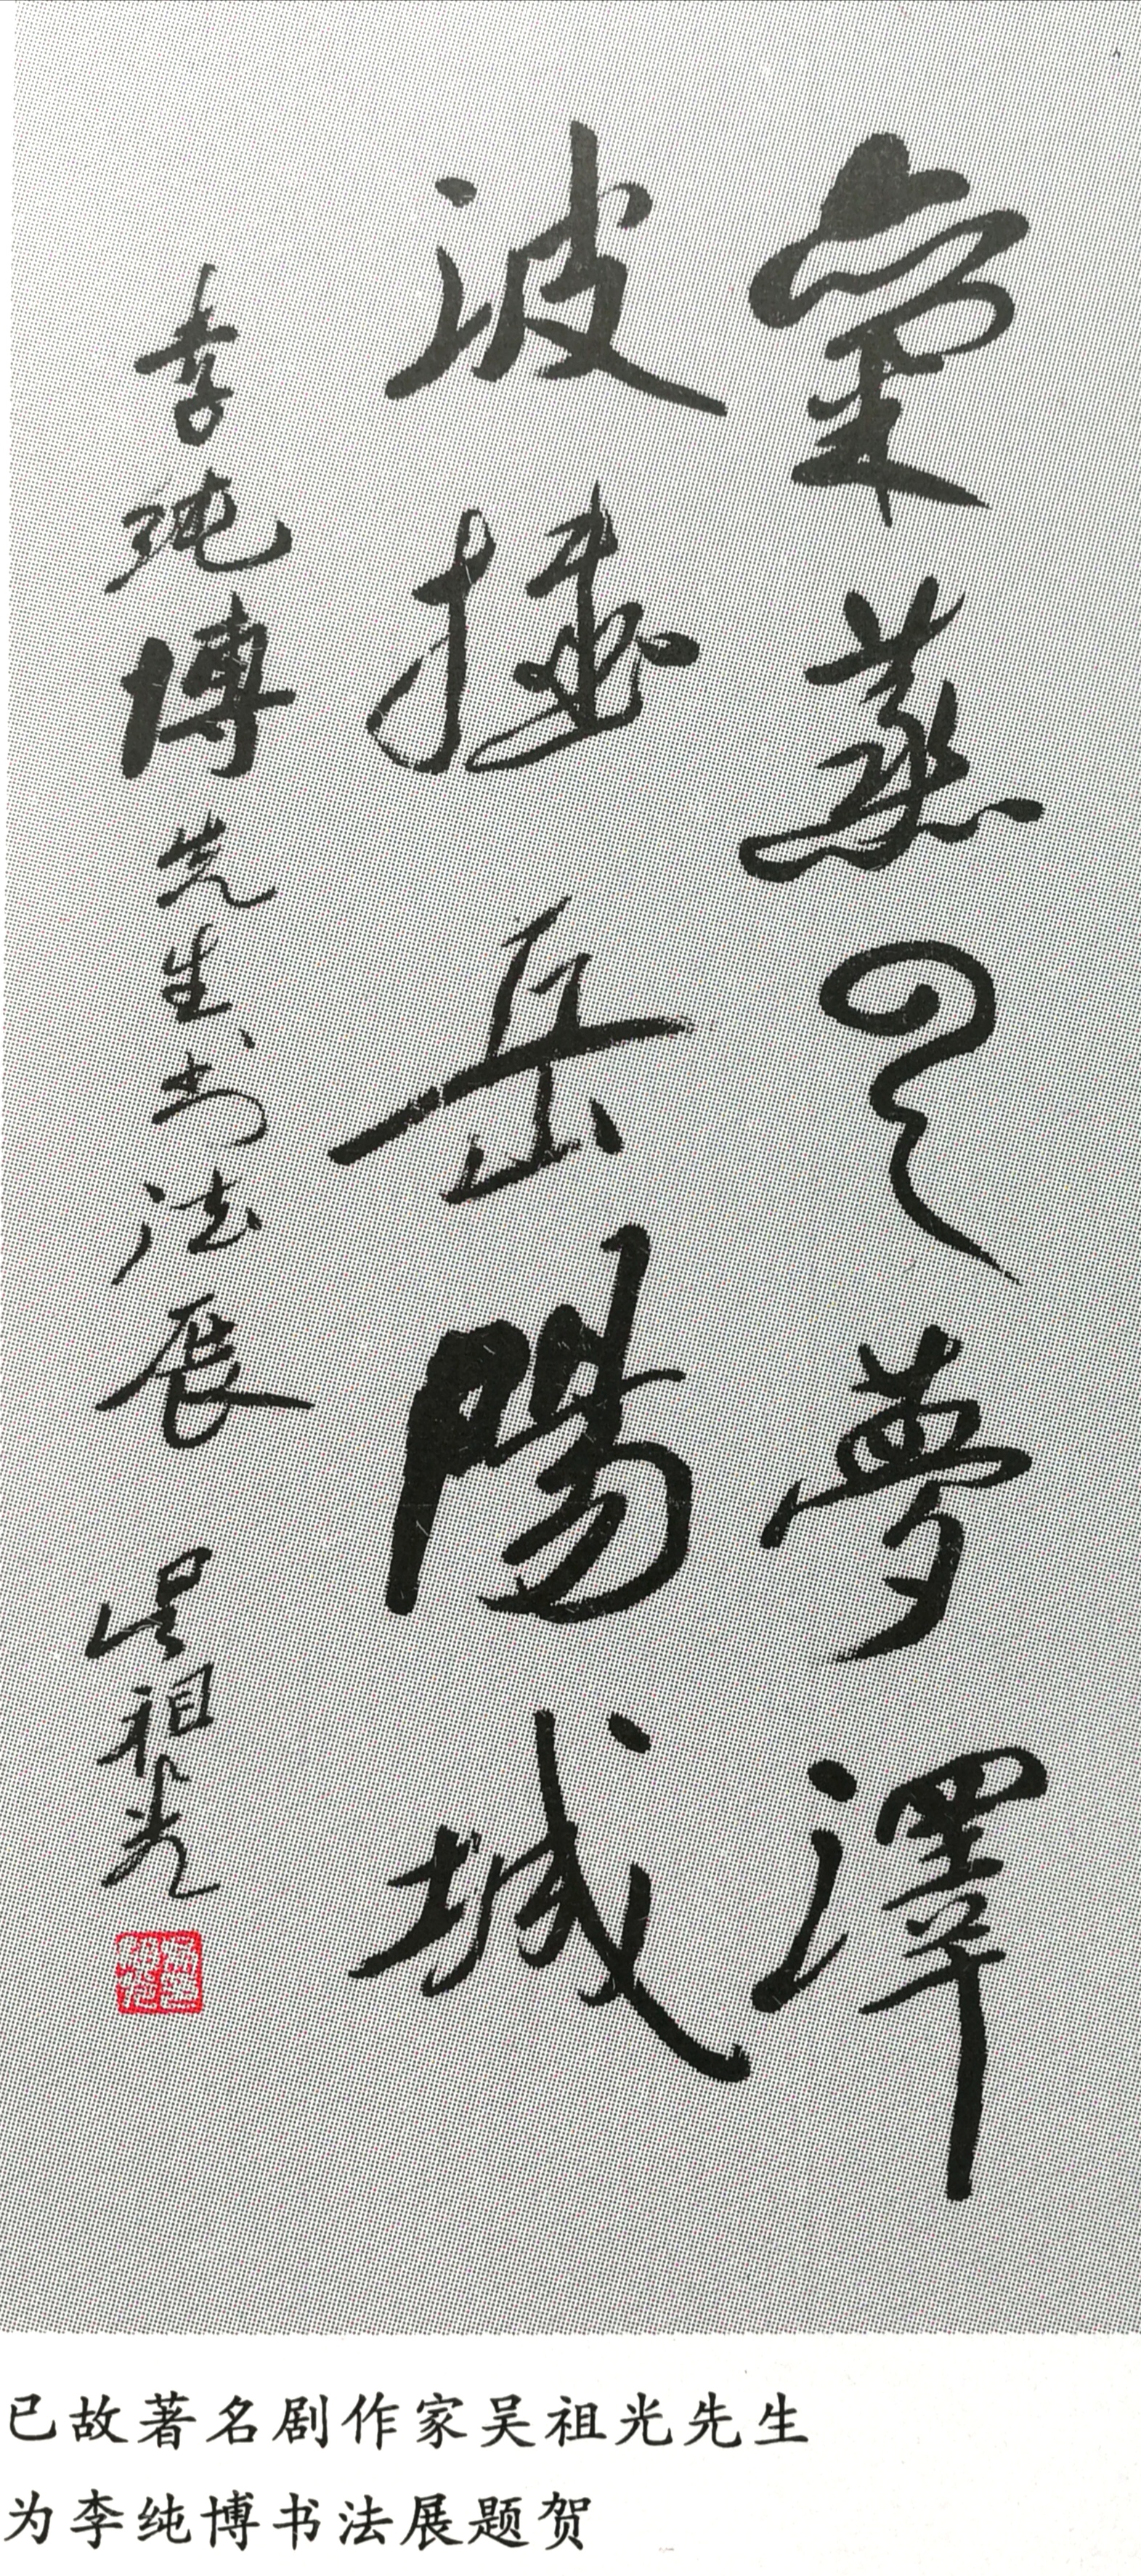 氣蒸雲夢澤
波撼岳陽城
李纯博先生书法展
吴祖光
已故著名剧作家吴祖光先生
为李纯博书法展题贺